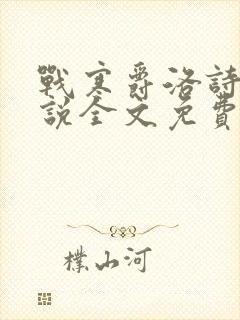 戰寒爵洛詩
說全文免費
樸山河